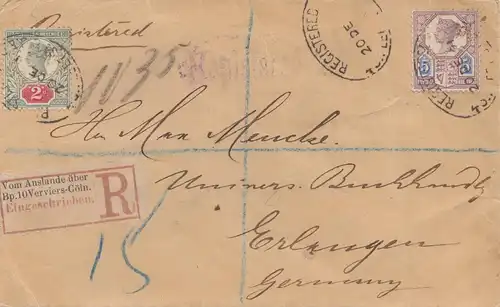 Registered
1135
REGISTERED
20 DE
2D
5D
Herr Max Mencke.
Vom Auslande über
Bp.10 Verviers-Cöln.
Eingeschrieben.
R
Univers. Buchhandlg
15
Erlangen
Germany